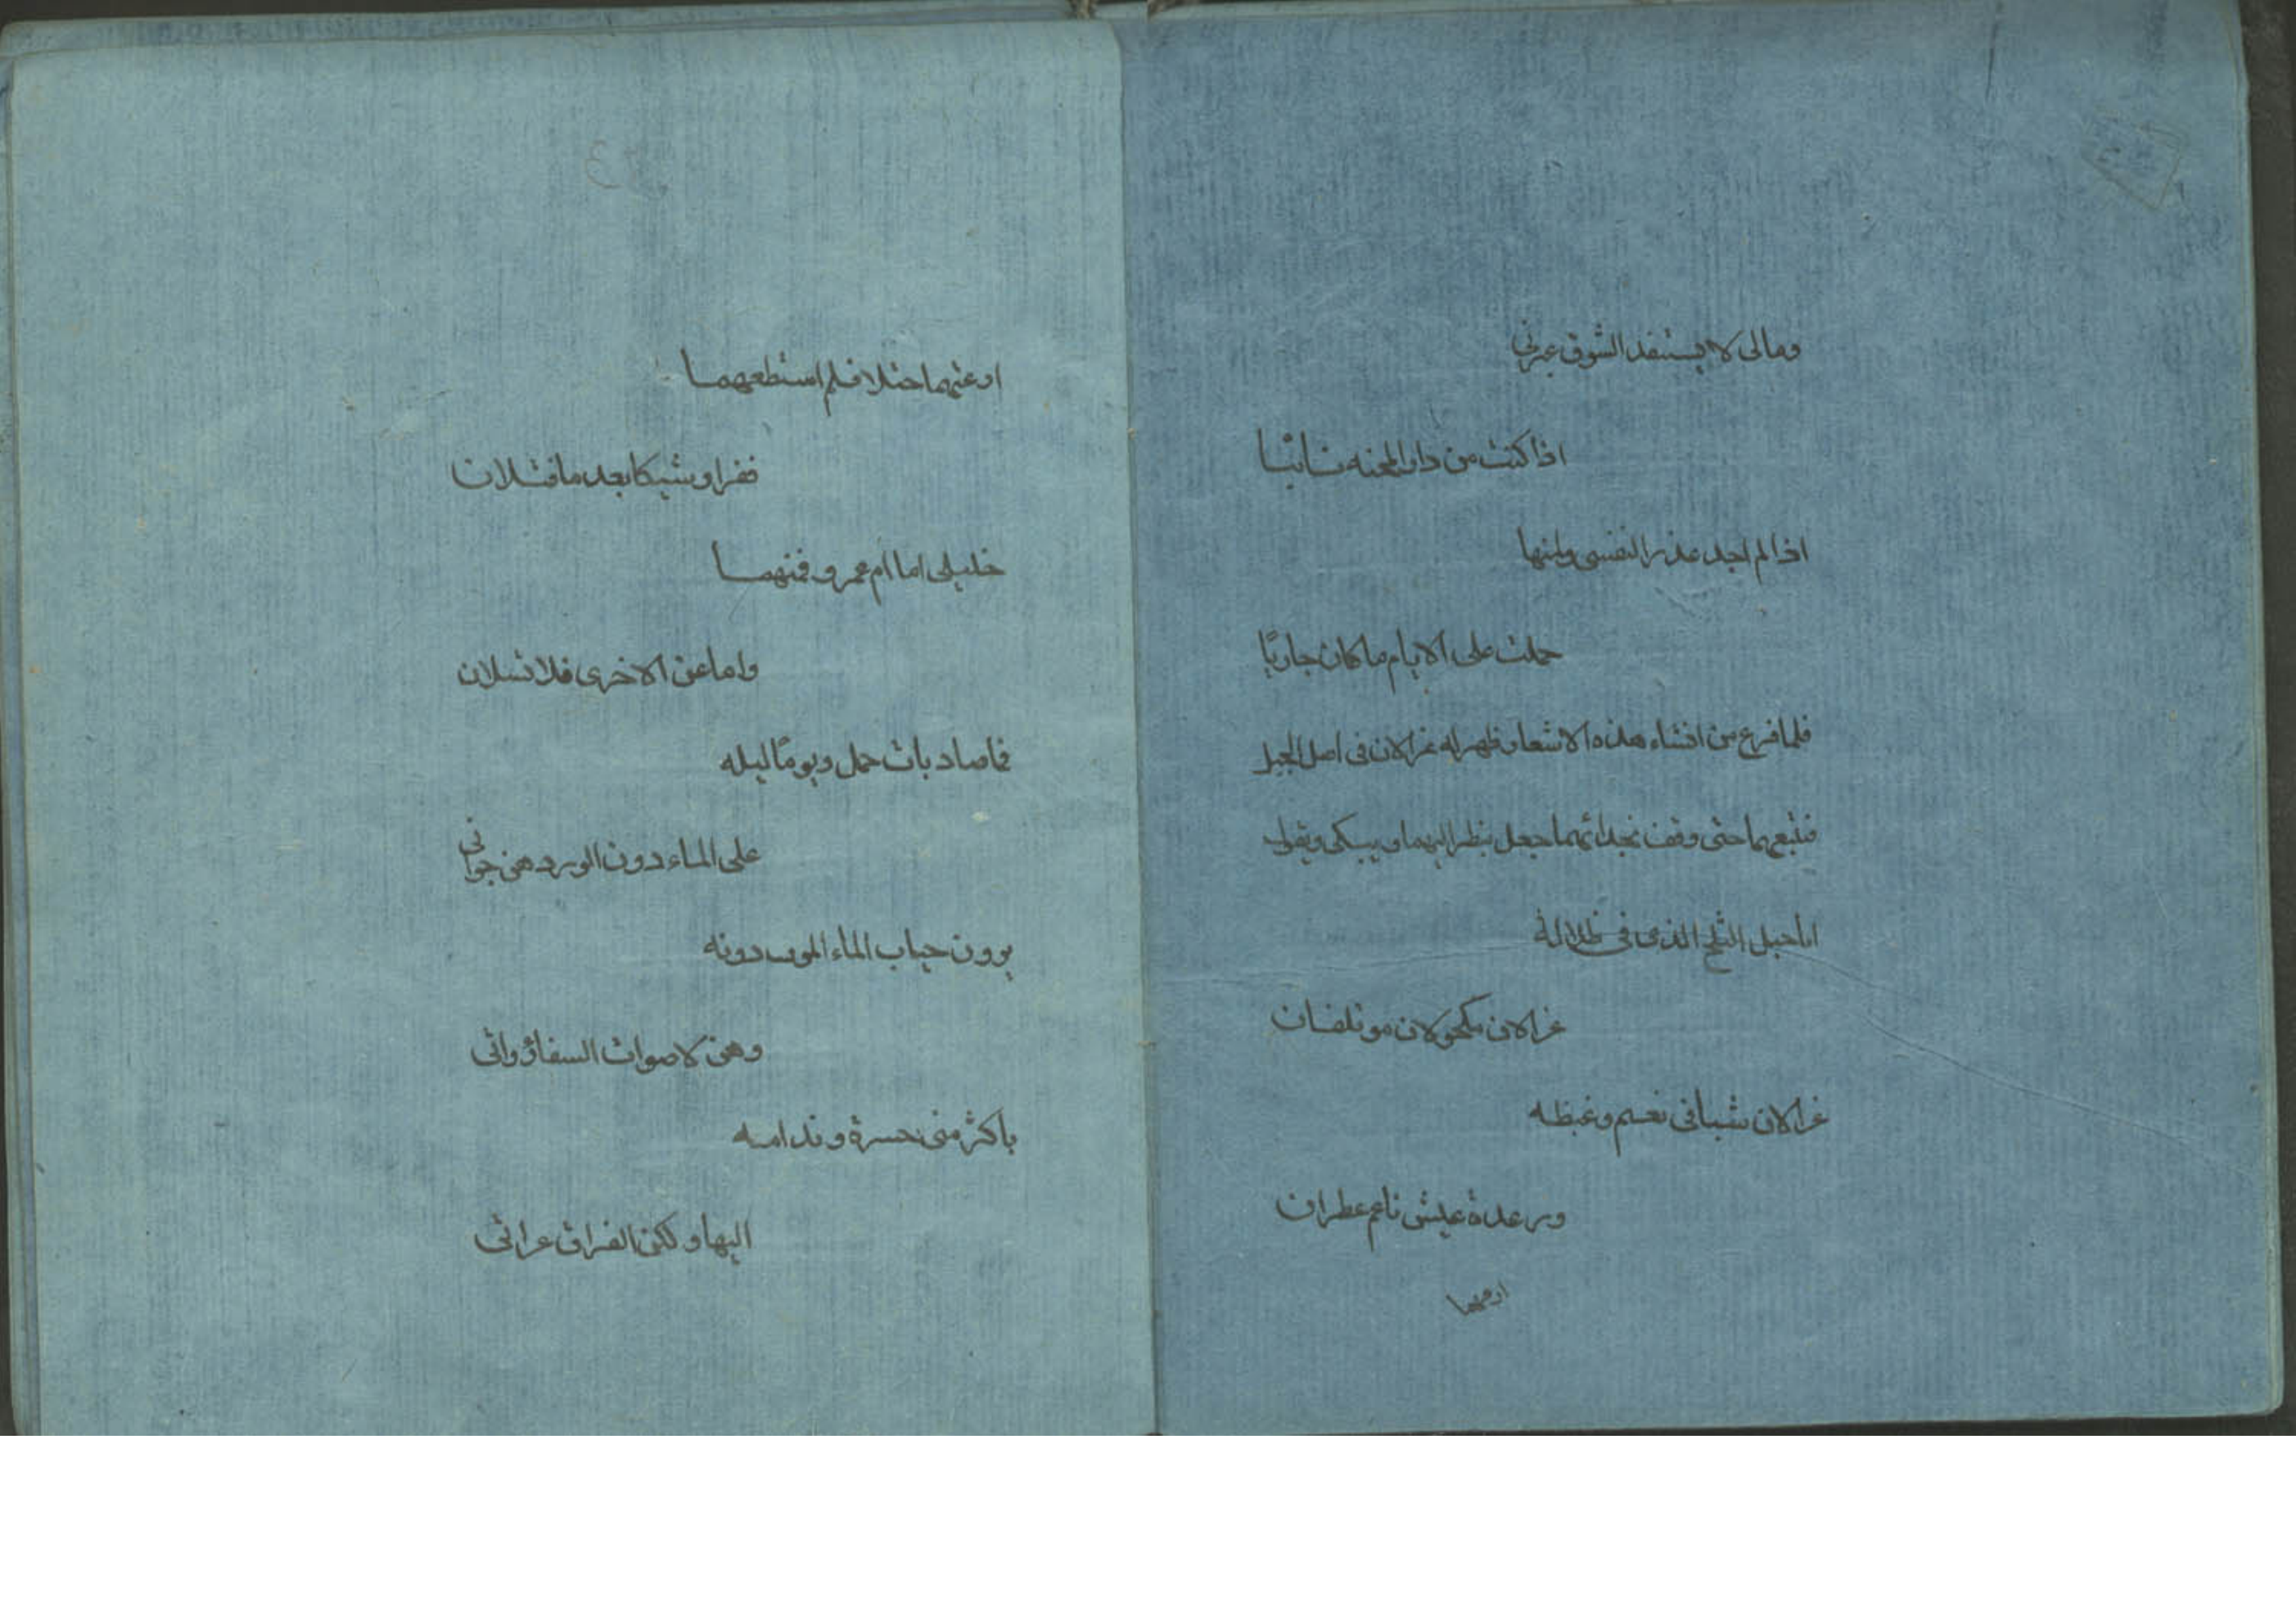 ومالى لا يستنفد الشوق عبرتى
اذا كنت من دار المحبه نائيا
اذا لم اجد عذرا لنفسى ولمتها
حملت على الايام ما كان جاريًا
فلما فرغ من انشاء هذه الاشعار ظهر له غزالان فى اصل الجبل
فتبعهما حتى وقف بحذائهما جعل ينظر اليهما ويبكى ويقول
ايا جبل الثلج الذى فى ظلاله
غزالان مكحولان موتلفان
غزالان شبا فى نعيم وغبطه
ورعدة عيش ناعم عطران
ارعتهما
ارعتهما ختلا فلم استطعهما
ففرا وشيكا بعد ما قتلان
خليلى اما ام عمرو فمنهما
واما عن الاخرى فلا تسلان
فما صاديات حمن ويومًا ليله
على الماء دون الورد هن حوانى
يرون حباب الماء الموت دونه
وهن لاصوات السقاة روانى
باكثر منى حسرة وندامه
اليها ولكن الفراق عرانى